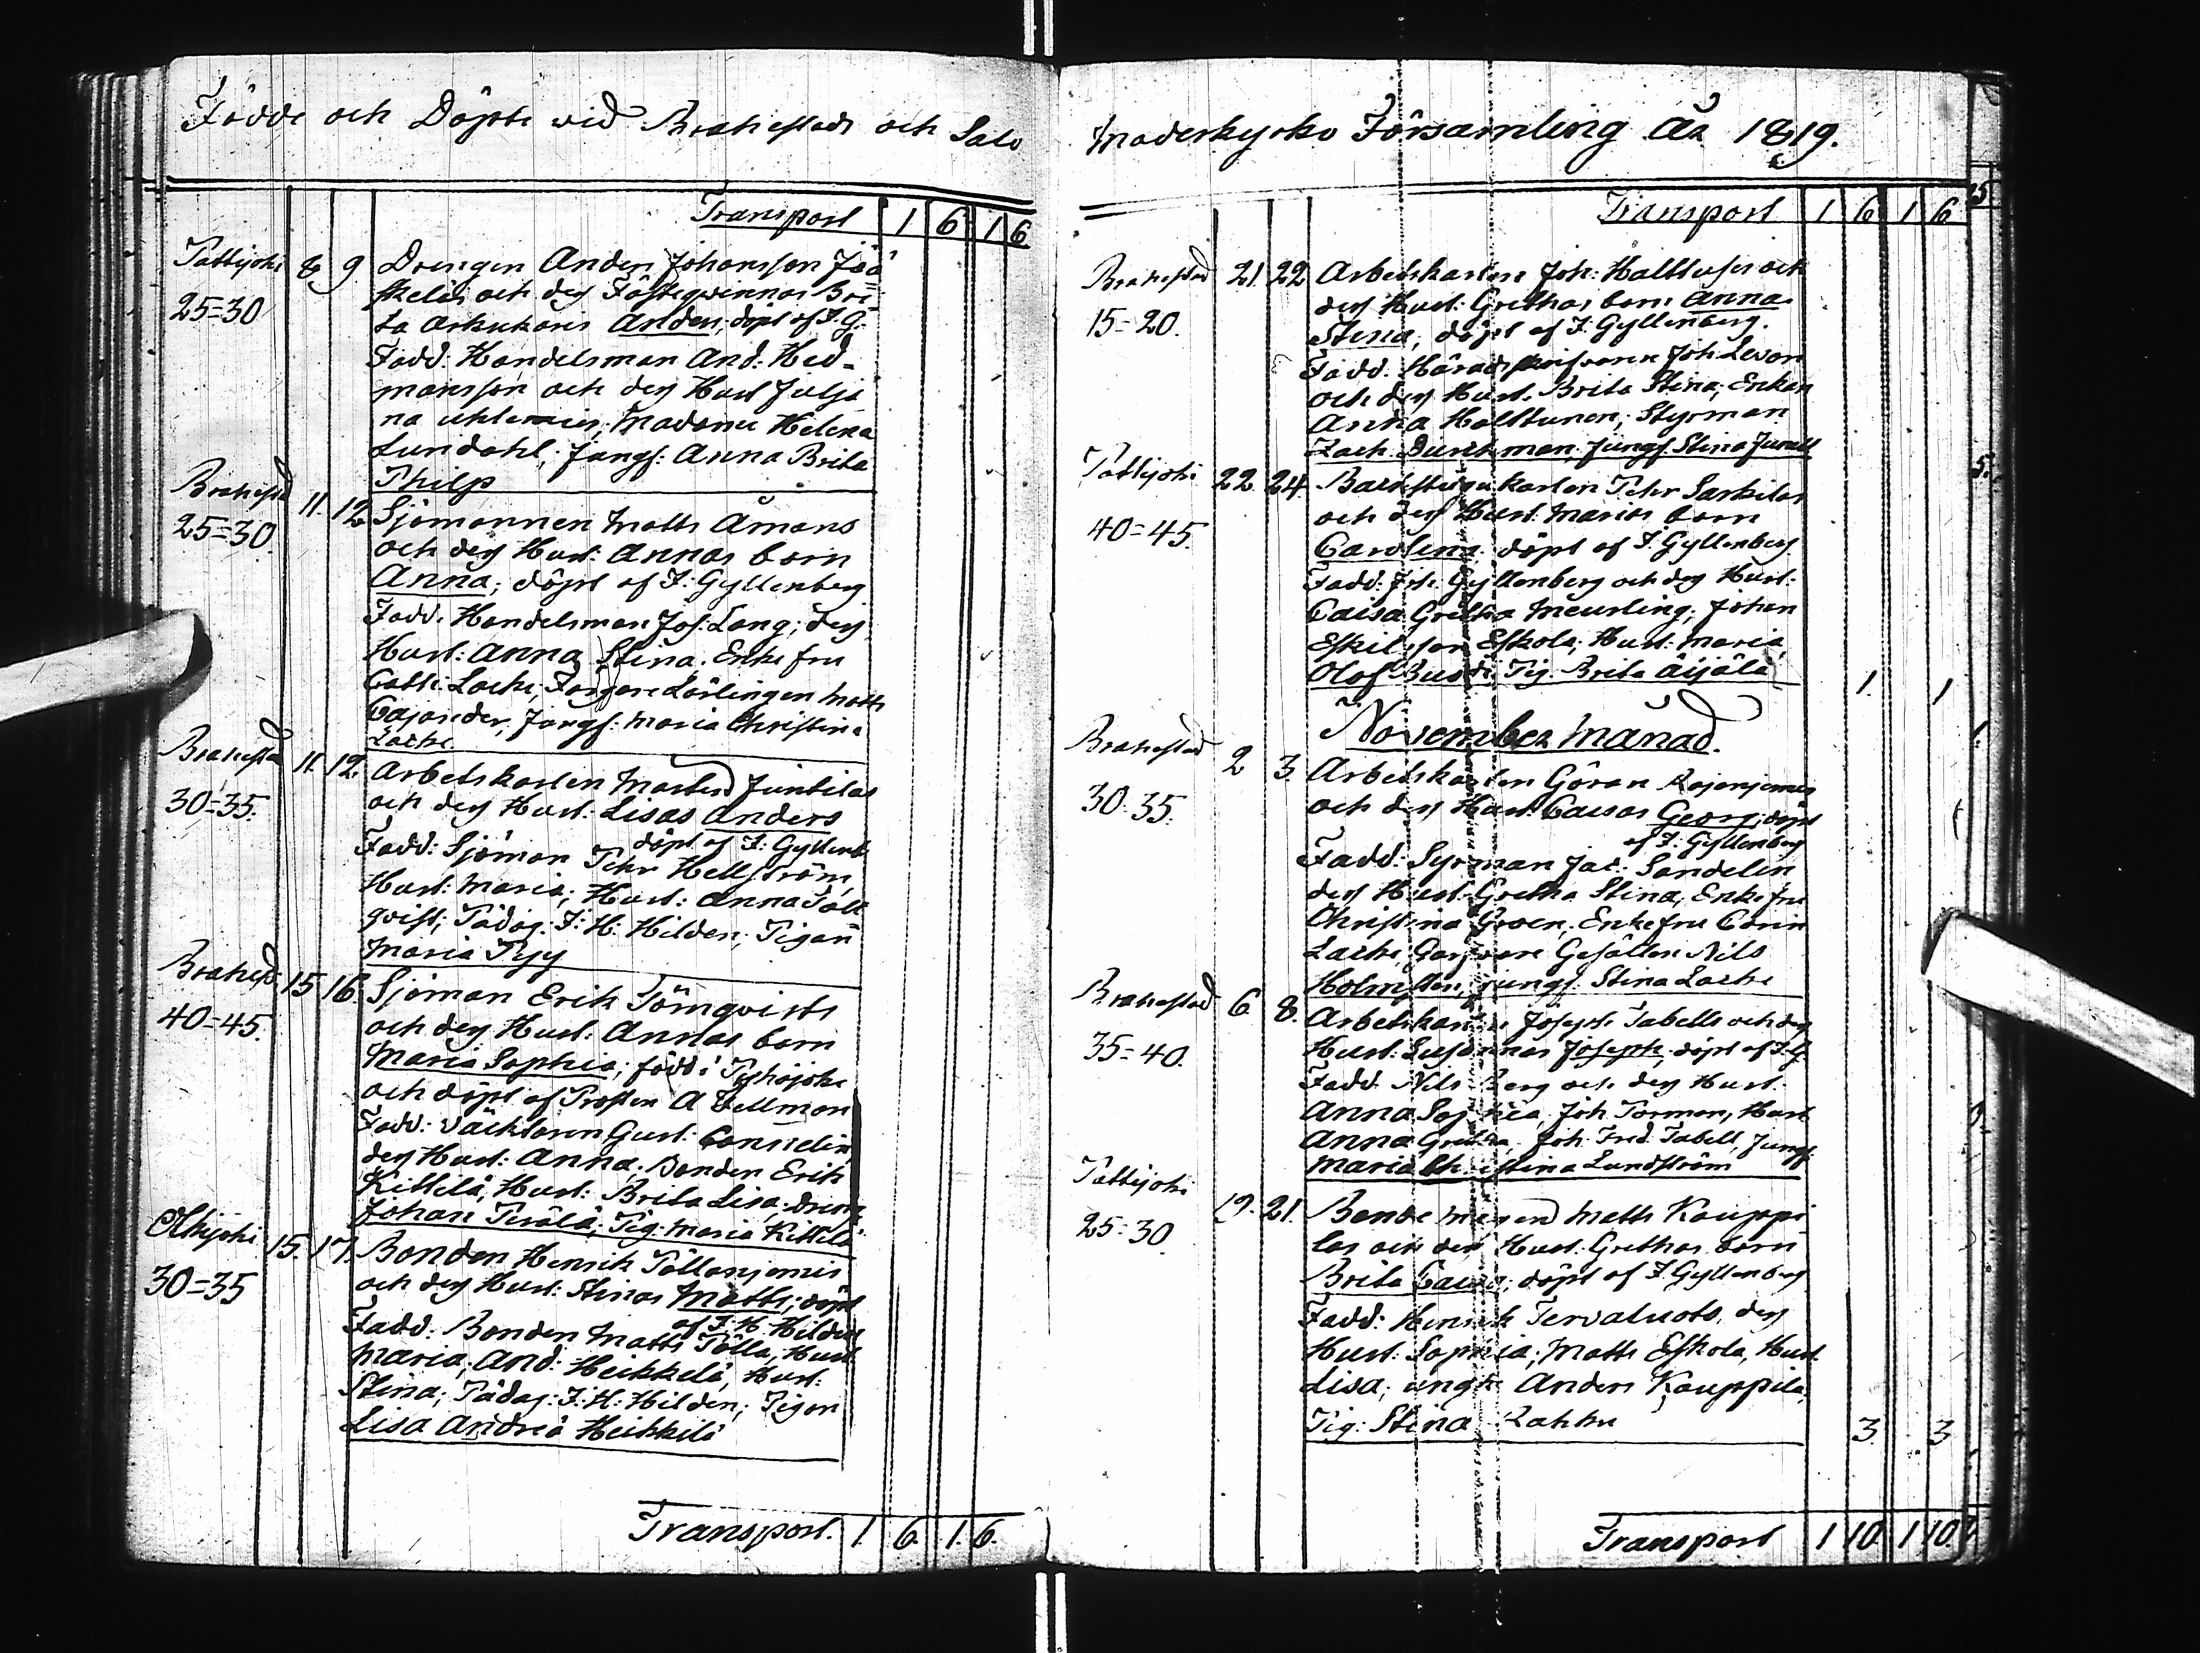 Födde och Döpte wid Brahestads och Salo
Transport 1 6 1 6
Pattijoki 8 9 Drengen Anders Johansson Jää
25=30 skeläs och des Fästeqwinnas Bri
ta Arkukaris Anders, döpt af J. G.
Fadd: Handelsman And: Hed-
mansson och des Hust Julja
na Uhlenius, Madame Helena
Lundahl, Jungf: Anna Brita
Philp
Brahestad 11. 12. Sjömannen Matts Åmans
25=30. och des Hust: Annas barn
Anna; döpt af J: Gyllenberg
Fadd. Handelsman Jos: Lang; des
Hust: Anna Stina. Enke fru
Cath: Lache; Färgare Lärlingen Matts
Cajander, Jungf: Maria Christina
Lache
Brahestad 11. 12. Arbetskarlen
30=35. och des Hust: Lisas Anders
döpt af J: Gyllenb
Fadd: Sjöman Pehr Hellström,
Hust: Maria; Hust: Anna Täll
qvist; Pädag: J: H: Hilden; Pigan
Maria Pyy
Brahestad 15 16. Sjöman Erik Törnqvists
40=45. och des Hust: Annas barn
Maria Sophia; född i Pyhäjoki
och döpt af Prosten A Vellman
Fadd: Väcktaren Gust:
des Hust: Anna. Bonden Erik
Kittilä, Hust: Brita Lisa; dreng
Johan Perälä; Pig: Maria Kittilä
Olkijoki 15. 17. Bonden Henrik
30=35 och des Hust: Stinas Matts; döpt
af J. H. Hilden
Fadd: Bonden Matts Pölla, Hust
Maria; And: Heikkelä, Hust:
Stina; Pädag: J: H: Hilden; Pigan
Lisa Andreä Heikkilä
Transport. 1. 6. 1. 6.
Moderkyrko Församling År 1819.
Transport 1 6 1 6
Brahestad 21. 22 Arbetskarlen Joh: Halttusis och
15=20. des Hust: Grethas barn Anna
Stina; döpt af J: Gyllenberg.
Fadd. Häradsskrifvaren Joh Levon
och des Hust. Brita Stina; Enkan
Anna Halttunen; Styrman
Zach. Durchman, Jungf. Stina Junell
Pattijoki 22. 24. Backstugukarlen Pehr Sarkilas
40=45. och des Hust: Marias barn
Carolina döpt af J. Gyllenberg
Fadd: Joh. Gyllenberg och des Hust:
Caisa Gretha Meurling; Johan
Eskilsson Eskola; Hust: Maria,
Olof Pig. Brita Äijälä 1. 1
November Månad.
Brahestad 2 3. Arbetskarlen Göran
30=35. och des Hust: Caisas Georg; döpt
af J: Gyllenberg
Fadd: Styrman Jac: Sandelin
des Hust: Gretha Stina, Enkefru
Christina Groen; Enkefru Carin
Lache, Garfvare Gesällen Nils
Holmsten, jungf. Stina Lache
Brahestad 6 8. Arbetskarlen Joseph Tabells och des
35=40. Hust: Susannas Joseph, döpt af J. G
Fadd Nils Berg och des Hust:
Anna Sophia, Joh Forman, Hust
Anna Gretha. Joh. Fred. Tabell, Jungf
Maria Christina Lundström
Pattijoki 19. 21. Bonde Matts Kauppi
25=30 las och des Hust. Grethas barn
Brita Caisa; döpt af J. Gyllenberg
Fadd: Henrik Tervaluoto, des
Hust: Sophia; Matts Eskola, Hust.
Lisa; Anders Kauppila,
Pig: Stina Rahku 3. 3
Transport 1 10. 1 10.